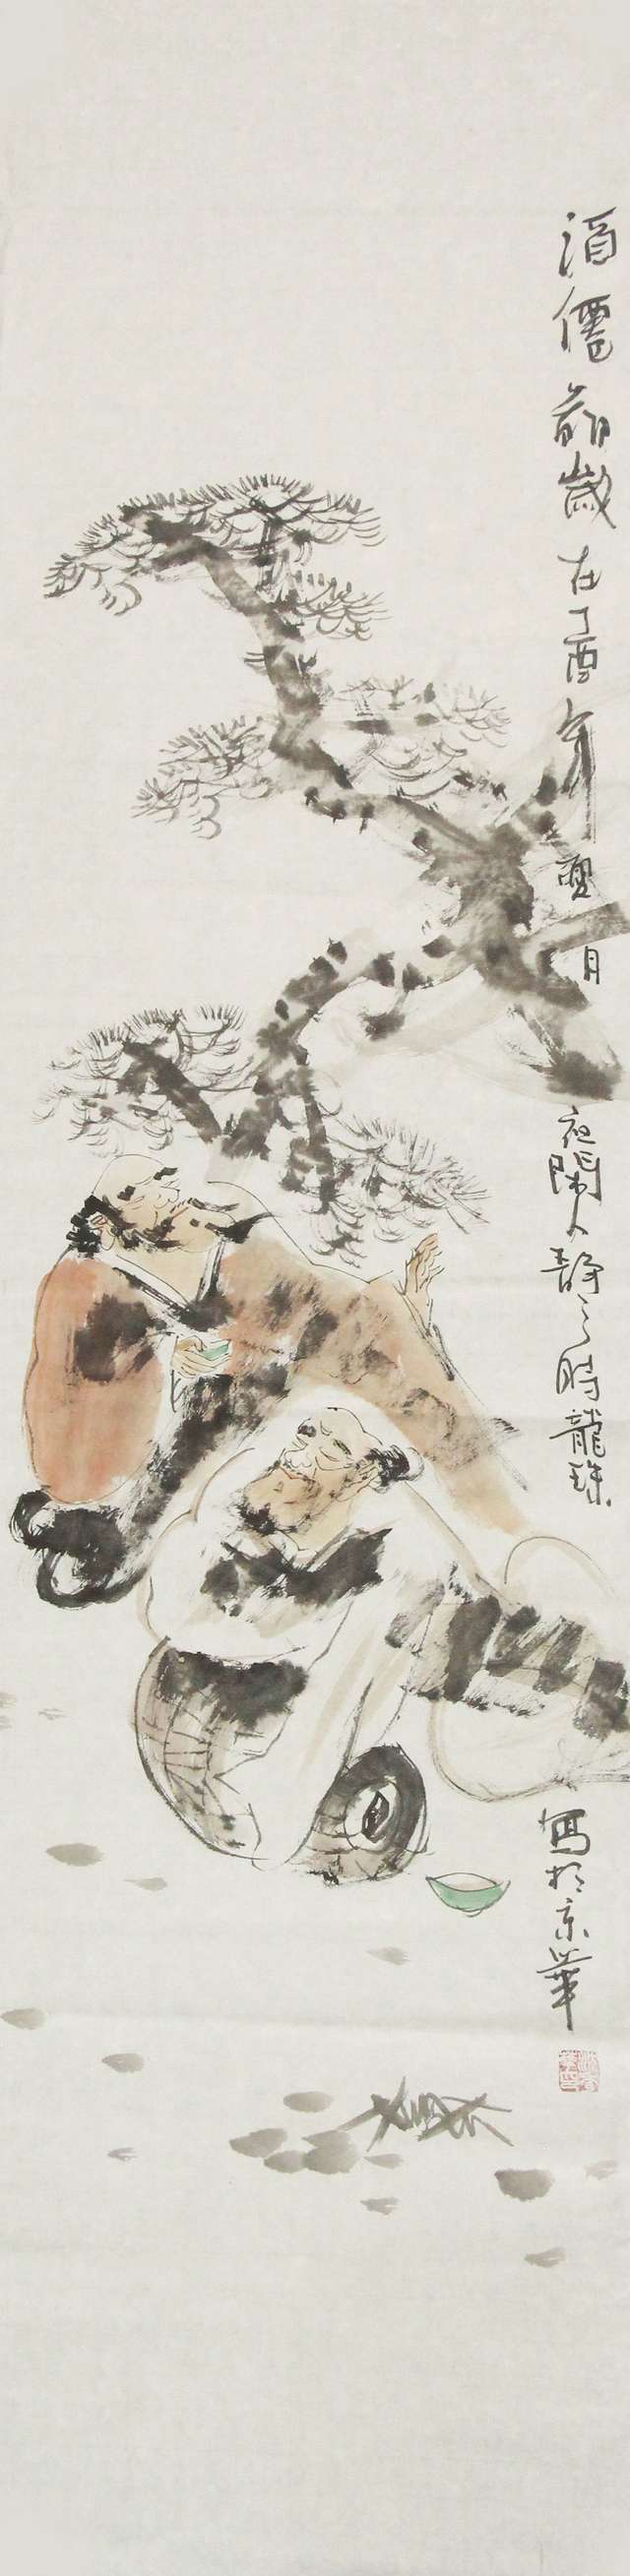 酒僊圖歲在丁酉年夏月夜闌人靜之時龍珠寫於京華